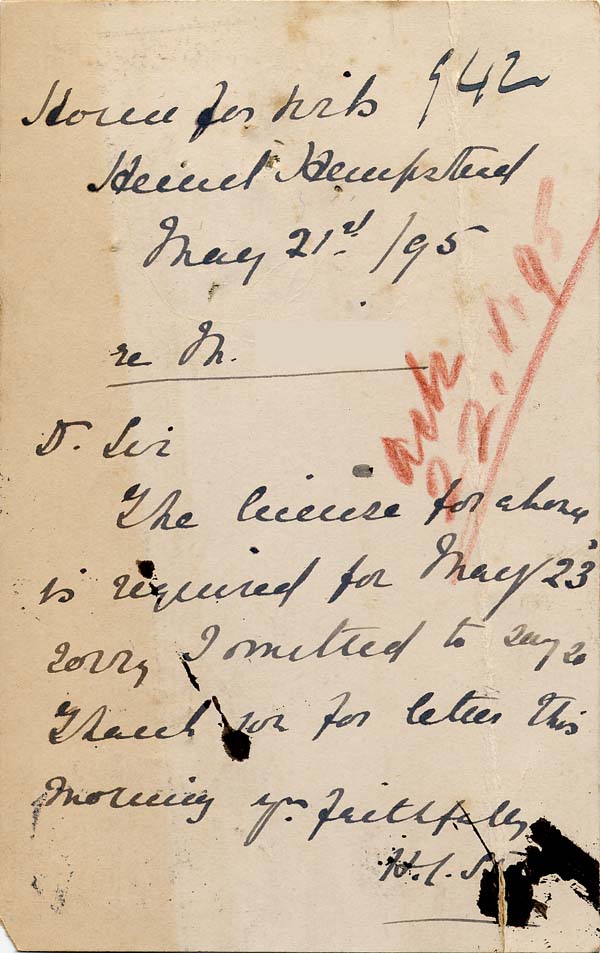 Home for Girls 942
Hemel Hempstead
May 21st /95
re M.
ack
22.5.95
D. Sir
The license for above
is required for May 23
sorry I omitted to say so
Thank you for letter this
morning yrs faithfully
H.